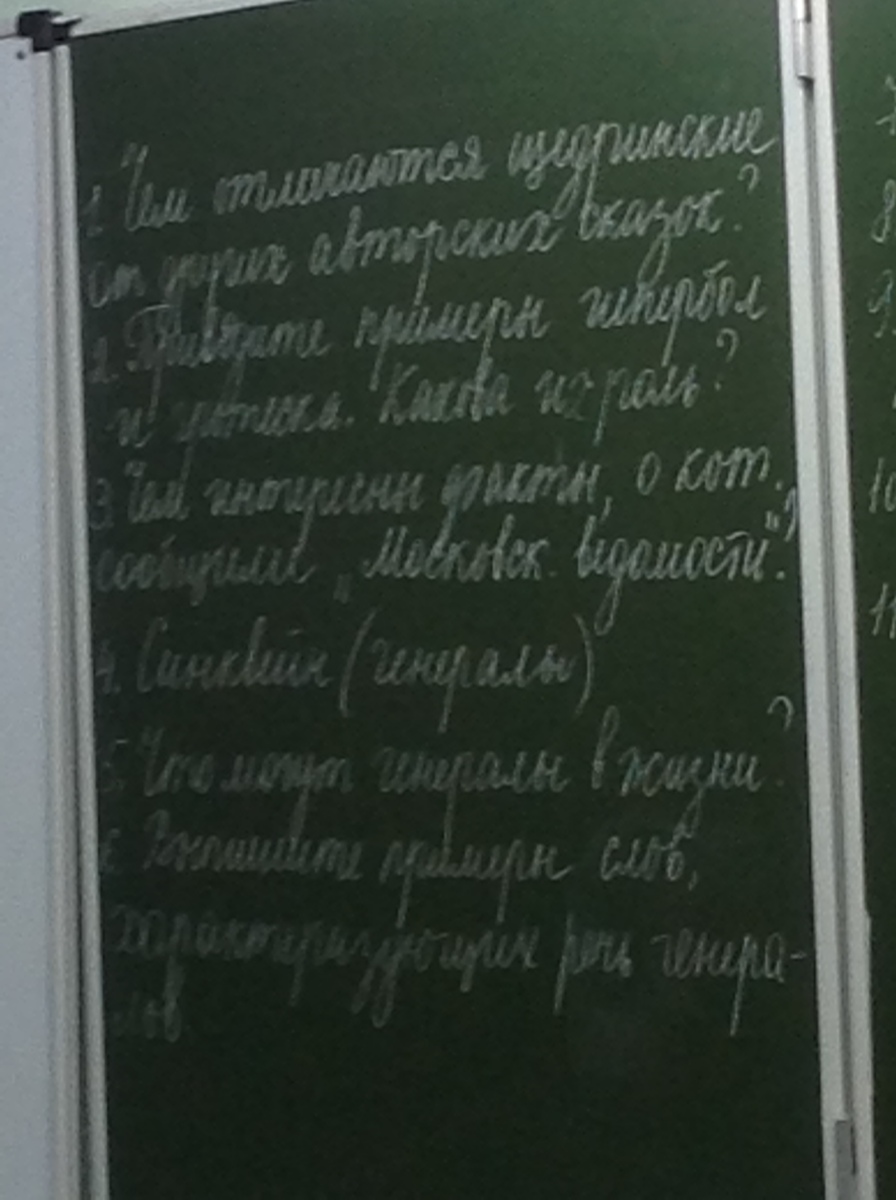 1. Чем отличаются щедринские
от других авторских сказок?
2. Приведите примеры гипербол
и гротеска. Какова их роль?
3. Чем интересны факты, о кот.
сообщили „Московск. ведомости"?
4. Синквейн (генералы)
5. Что могут генералы в жизни?
6. Выпишите примеры слов,
характеризующих речь генера-
лов.
7
8
9
10
11